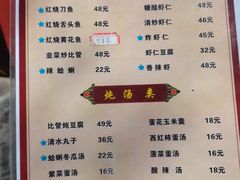 ★红烧刀鱼 48元
★红烧舌头鱼 48元
★红烧黄花鱼
韭菜炒比管 48元
★辣蛤蜊 22元
糖醋虾仁 48元
清炒虾仁 48元
★炸虾仁 45元
虾仁豆腐 32元
★香辣虾 48元
炖汤类
比管炖豆腐 49元
★清水丸子 36元
★蛤蜊冬瓜汤 22元
紫菜蛋汤 16元
萱花玉米羹 18元
西红柿蛋汤 16元
菠菜蛋汤 16元
酸辣汤 18元